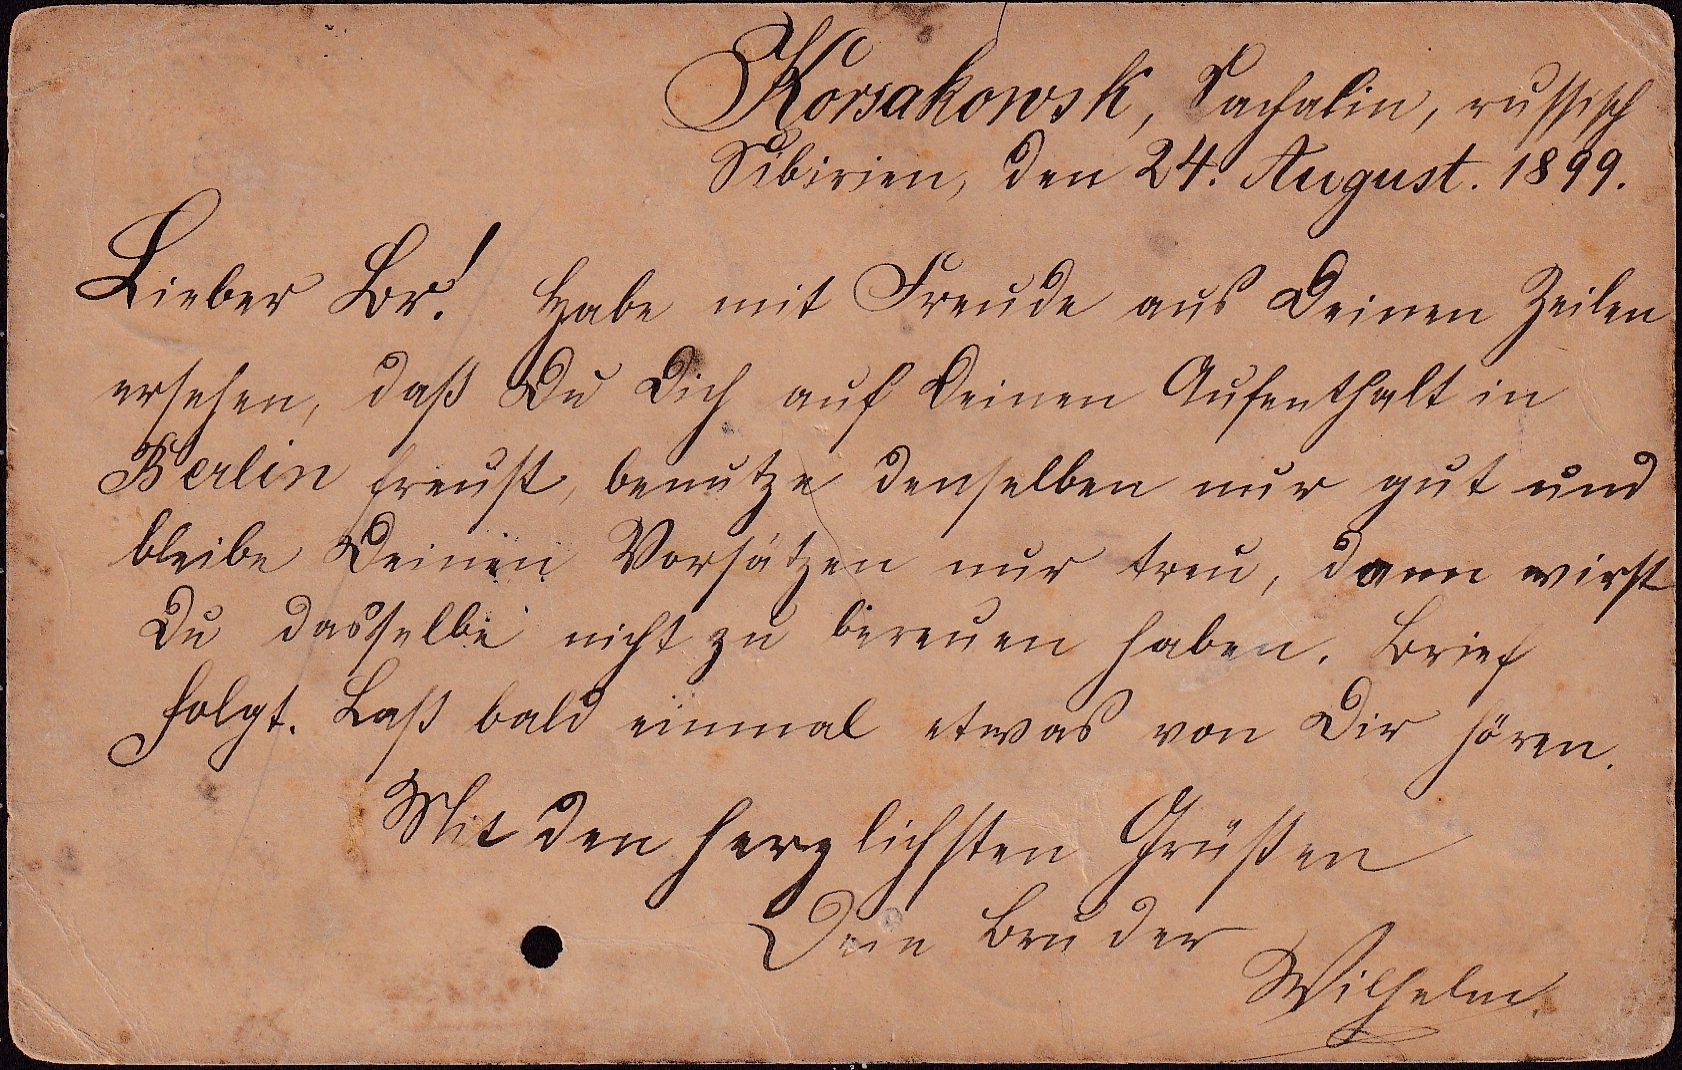 Korsakowsk, Sachalin, russisch
Sibirien, den 24. August. 1899.
Lieber Br.! Habe mit Freude aus Deinen Zeilen
ersehen, daß Du Dich auf Deinen Aufenthalt in
Berlin freust, benutze denselben nur gut und
bleibe Deinen Vorsätzen nur treu, dann wirst
Du dasselbe nicht zu bereuen haben. Brief
folgt. Laß bald einmal etwas von Dir hören.
Mit den herzlichsten Grüßen
Dein Bruder
Wilhelm.